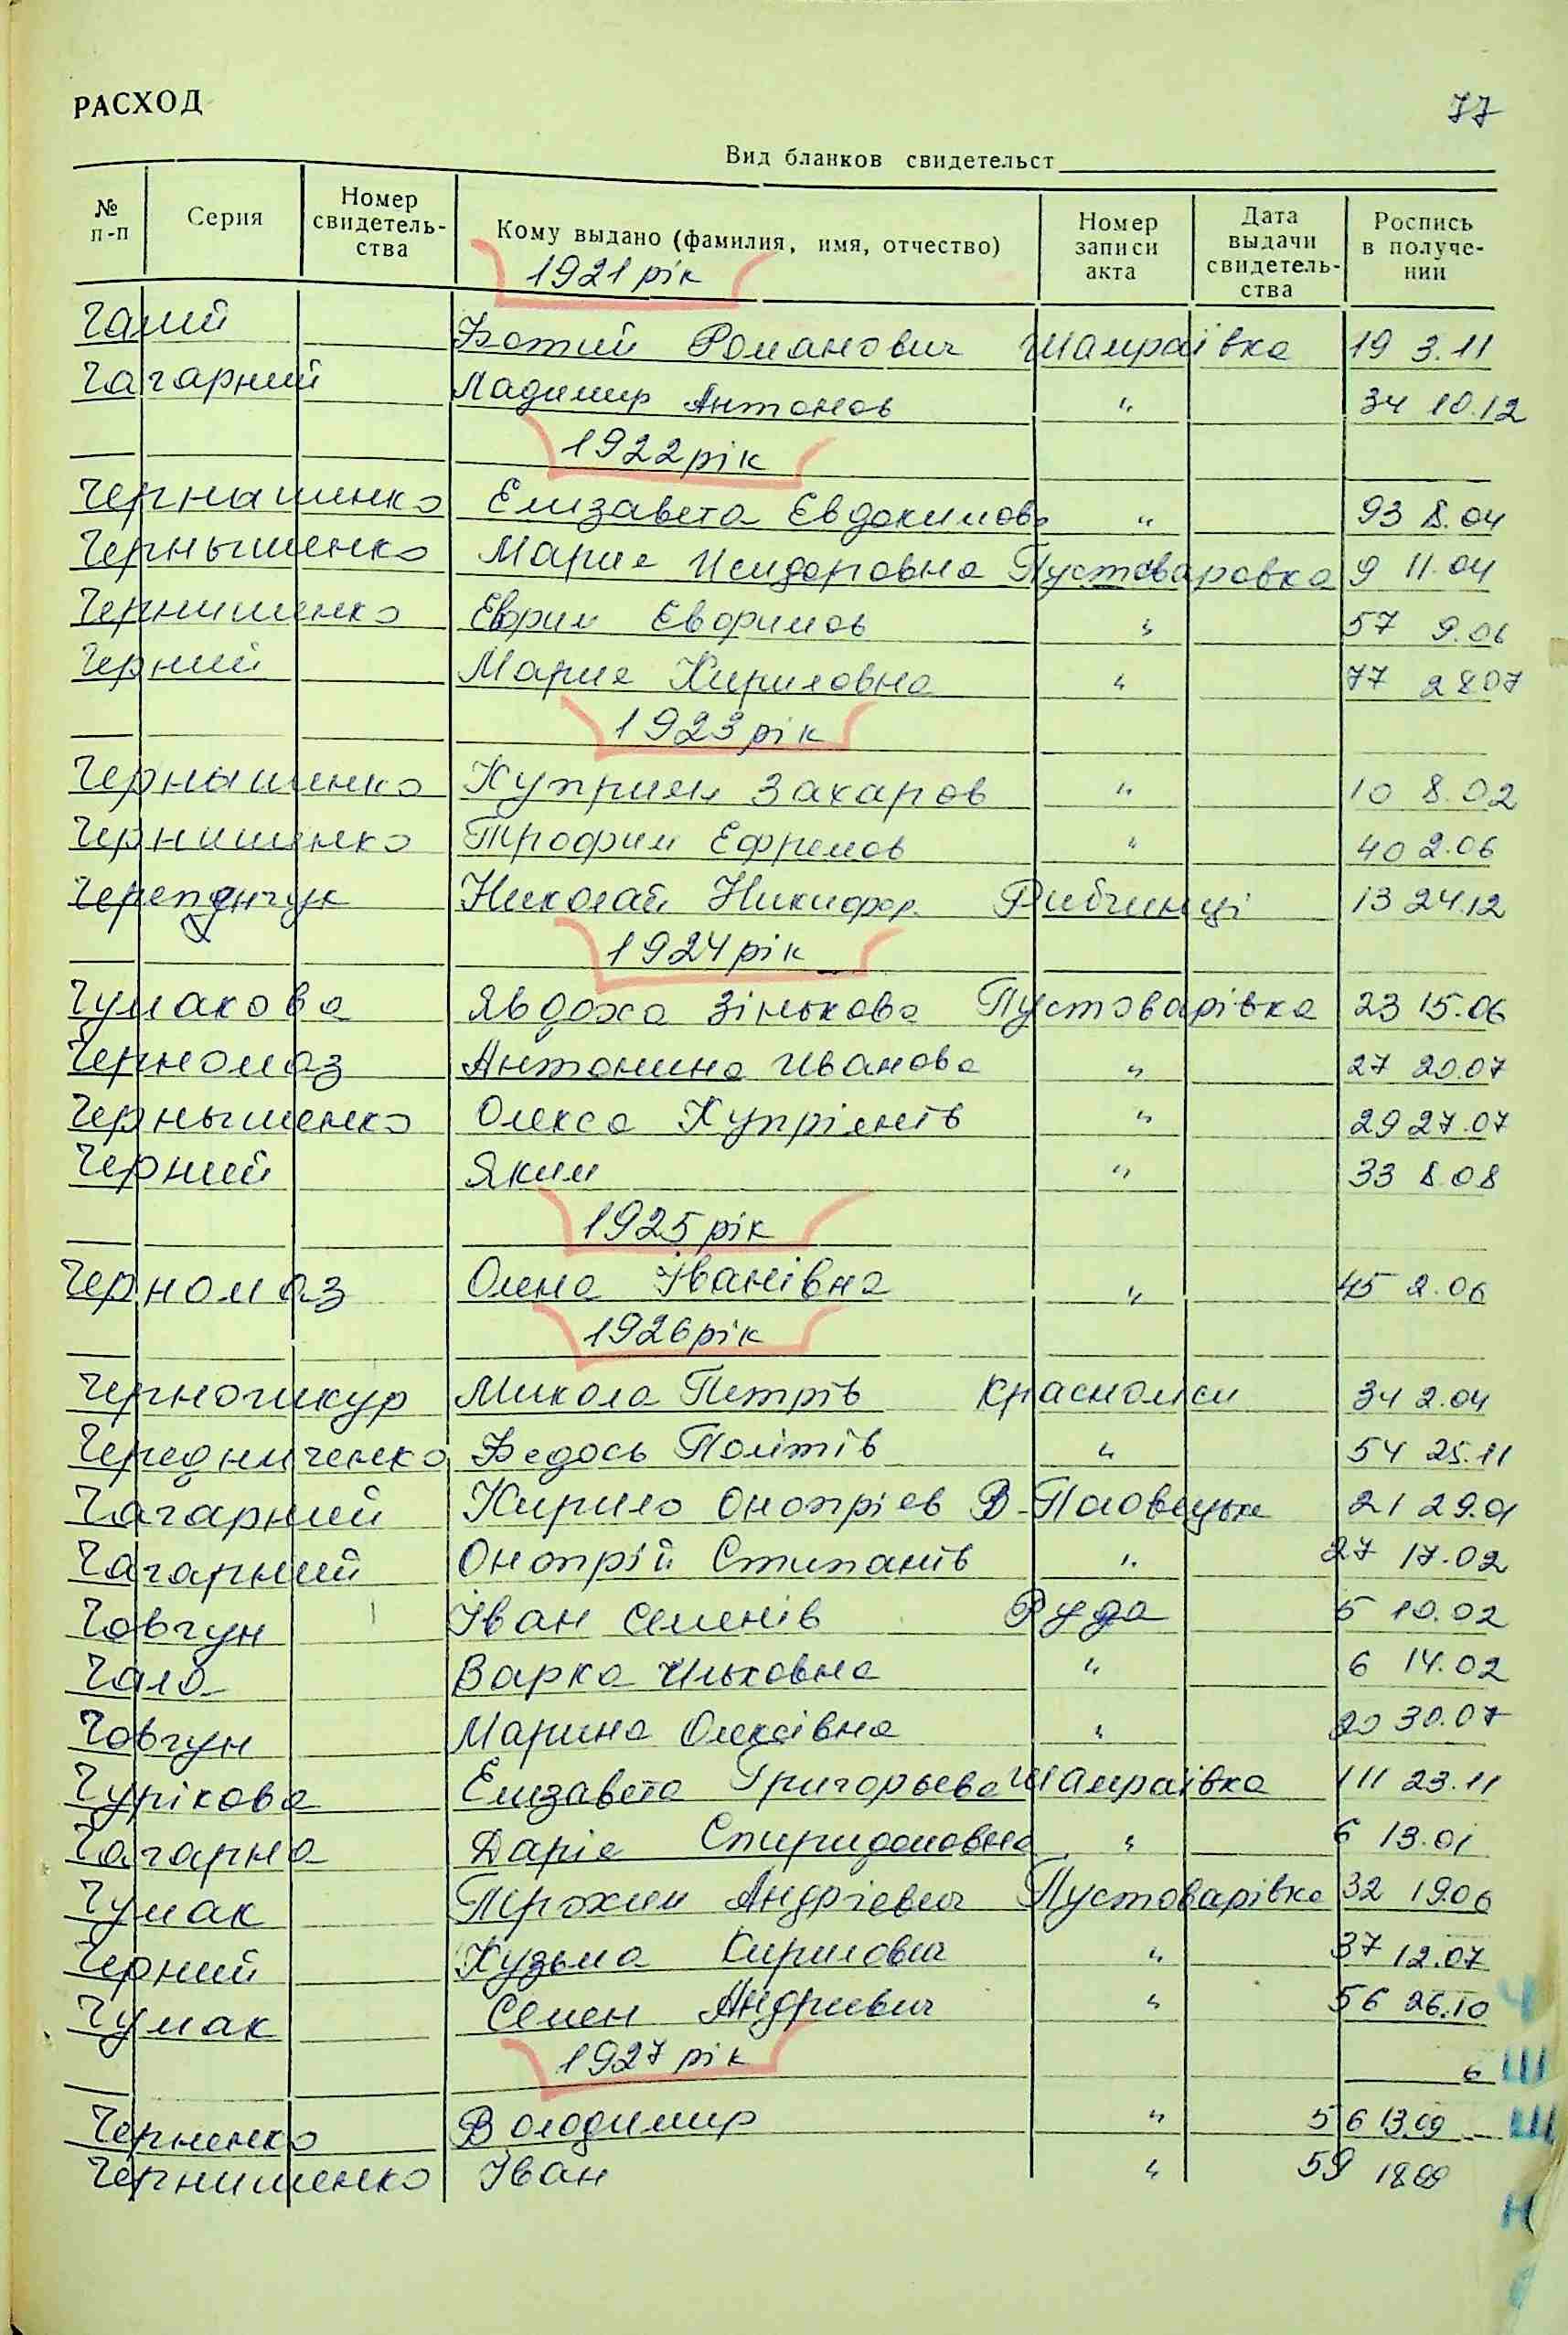 РАСХОД
77
Вид бланков свидетельст
№ п-п Серия Номер свидетель-ства Кому выдано (фамилия, имя, отчество) Номер записи акта Дата выдачи свидетель-ства Роспись в получе-нии
1921 рік
Чалий Фотий Романович Шамраївка 19 3.11
Чагарний Ладимир Антонов " 34 10.12
1922 рік
Чернашенко Елизавета Евдокимова " 93 8.04
Чернышенко Мария Исидоровна Пустоваровка 9 11.04
Чернишенко Ефрим Ефримов " 57 9.06
Черний Мария Кириловна " 77 28 07
1923 рік
Чернышенко Куприян Захаров " 10 8.02
Чернишенко Трофим Ефремов " 40 2.06
Николай Никифор. Рибчинці 13 24.12
1924 рік
Чумакова Явдоха Зінькова Пустоварівка 23 15.06
Черномаз Антонина Иванова " 27 20.07
Чернышенко Олекса Купріянів " 29 27.07
Черний Яким " 33 8.08
1925 рік
Черномаз Олена Іванівна " 45 2.06
1926 рік
Микола Петрів Краснолиси 34 2.04
Чередниченко Федось Політів " 54 25.11
Чагарний Кирило Онопріев В-Половецьке 21 29.01
Чагарний Онопрій Степанів " 27 17.02
Човгун Іван Семенів Руда 5 10.02
Чало Варка Ильковна " 6 14.02
Човгун Марина Олексівна " 20 30.07
Чурікова Елизавета Григорьева Шамраівка 111 23.11
Чагарна Даріа Спиридоновна " 6 13.01
Чумак Трохим Андріевич Пустоварівка 32 19.06
Черний Кузьма Кирилович " 37 12.07
Чумак Семен Андриевич " 56 26.10
Ч
1927 рік
6 Ш
Черненко Володимир " 56 13.09
Ш
Чернишенко Іван " 59 18 09
Н